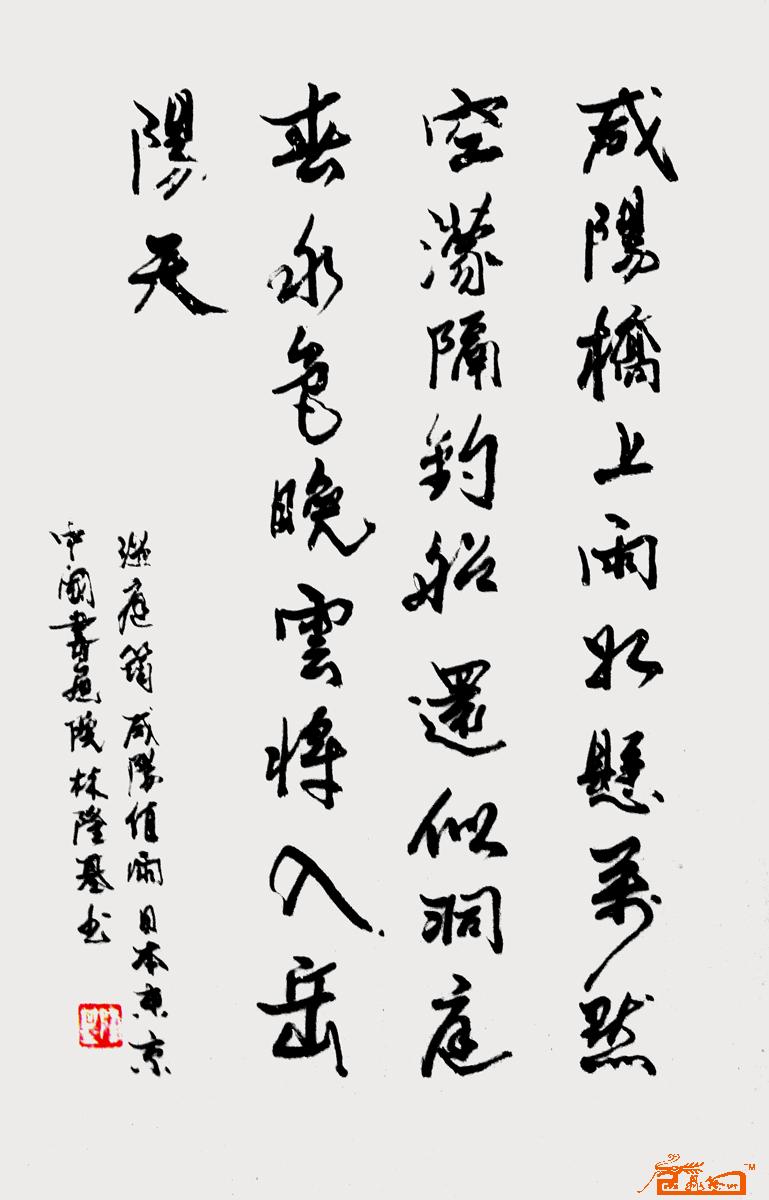 咸陽橋上雨如懸萬點
空濛隔釣船還似洞庭
春水色晚雲將入岳
陽天
溫庭筠咸陽值雨日本東京
中國書画院林隆基书